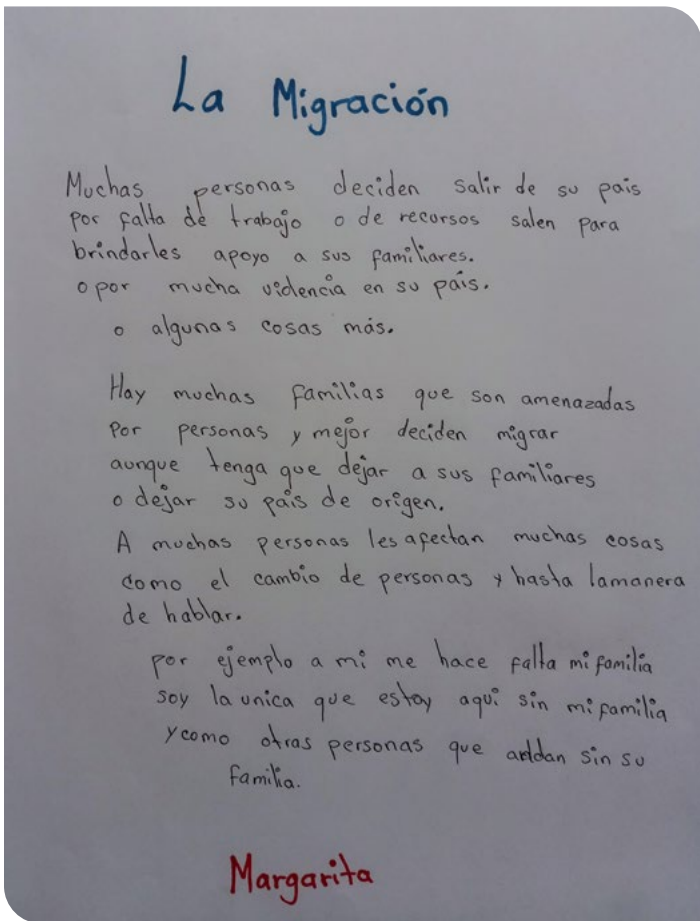 La Migración
Muchas personas deciden salir de su pais
por falta de trabajo o de recursos salen para
brindarles apoyo a sus familiares.
o por mucha violencia en su país.
o algunas cosas más.
Hay muchas familias que son amenazadas
por personas y mejor deciden migrar
aunque tenga que dejar a sus familiares
o dejar su país de origen.
A muchas personas les afectan muchas cosas
como el cambio de personas y hasta lamanera
de hablar.
por ejemplo a mi me hace falta mi familia
soy la unica que estoy aquí sin mi familia
y como otras personas que andan sin su
familia.
Margarita